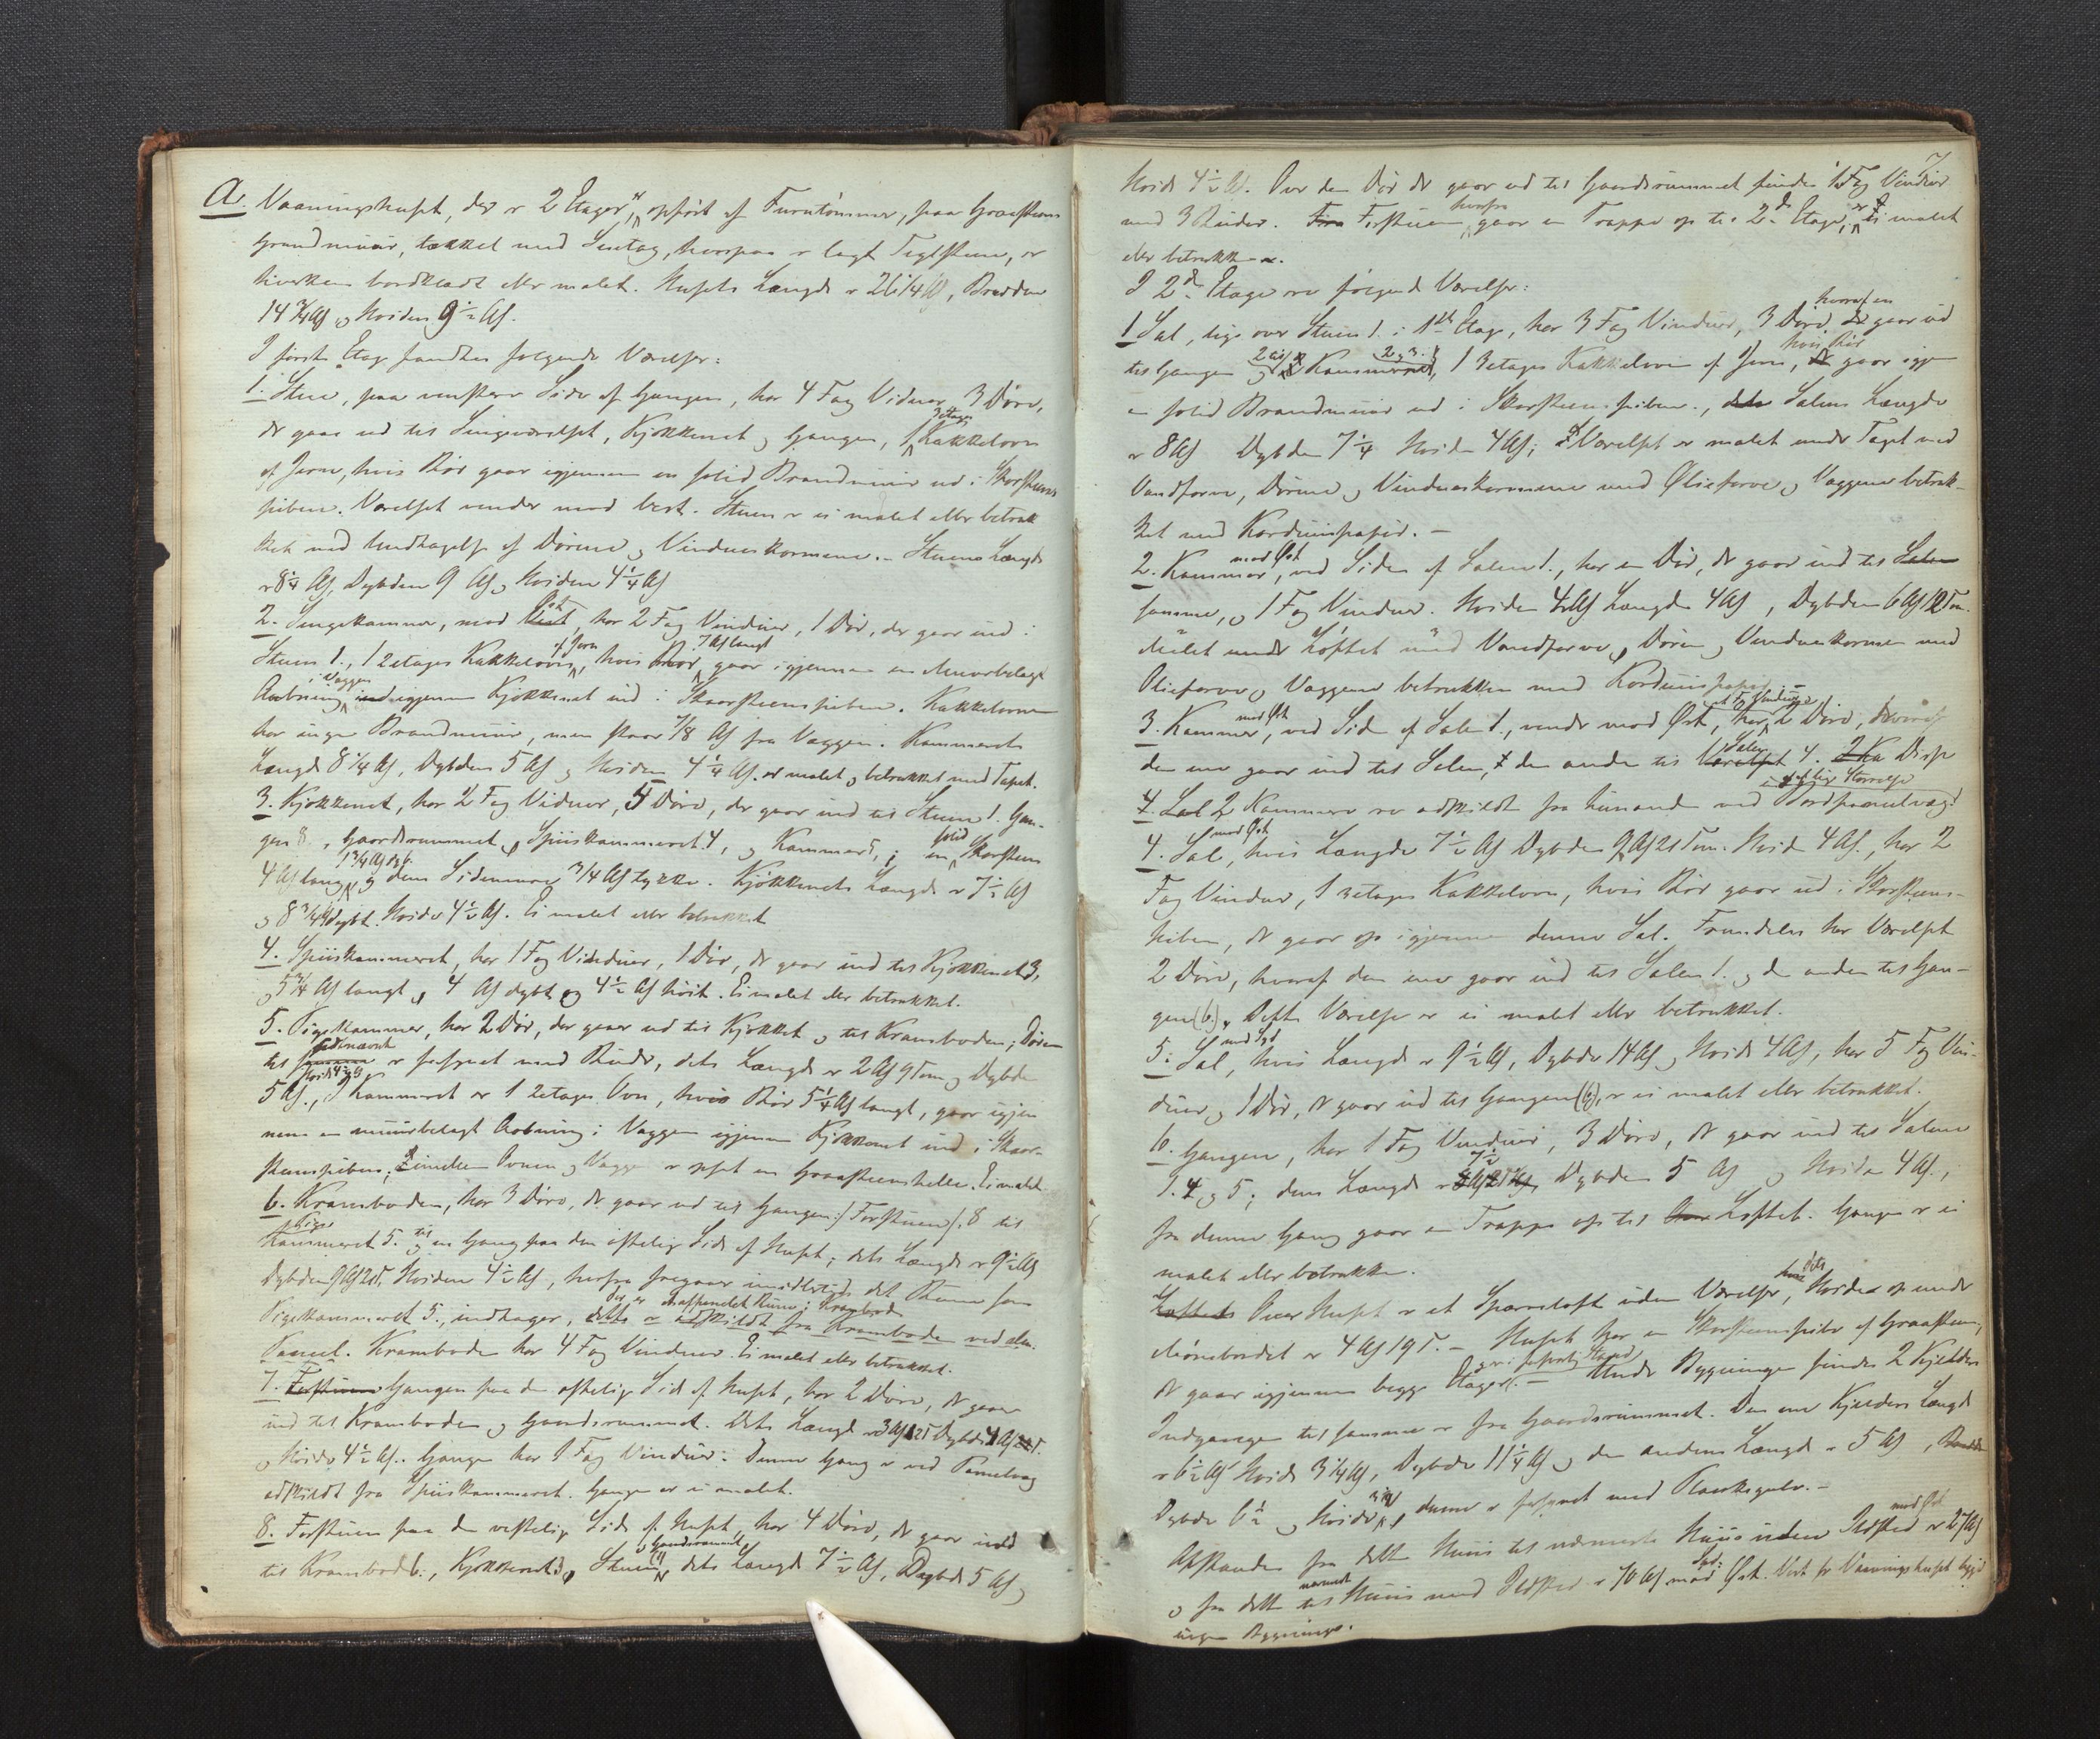 A. Vaaningshuset, der er 2 Etager, opført af Furutømmer, paa Graasteens
Grundmuur, tækket med Steentag, hvorpaa er lagt Teglsteen, er
hverken bordklædt eller malet. Husets Længde er 26 1/4 Al, Bredden
14 3/4 Al og Høiden 9 1/2 Al.
I første Etage fandtes følgende Værelser:
1. Stue, paa venstre Side af Gangen, har 4 Fag Vinduer, 3 Døre,
der gaar ud til Sengeværelset, Kjøkkenet og Gangen, 1 3etages Kakkelovn
af Jern, hvis Rør gaar igjennem en solid Brandmuur ud i Skorsteens
piben. Værelset vender mod Vest. Stuen er ei malet eller betræk
ket med Undtagelse af Dørene og Vindueskarmene. - Stuens Længde
er 8 1/4 Al, Dybden 9 Al og Høiden 4 1/4 Al
2. Sengekammer, mod Øst, har 2 Fag Vinduer, 1 Dør, der gaar ind i
Stuen 1., 1 2etages Kakkelovn af Jern, hvis Rør, 7 Al langt gaar igjennem en Muurbelagt
Aabning i Væggen igjennem Kjøkkenet ind i Skorsteenspiben. Kakkelovnen
har ingen Brandmuur, men staar 7/8 Al fra Væggen. Kammerets
Længde 8 1/4 Al, Dybden 5 Al og Høiden 4 1/4 Al. er malet og betrukket med Tapet.
3. Kjøkkenet, har 2 Fag Vinduer, 5 Døre, der gaar ind til Stuen 1. Gan-
gen 8, Gaardsrummet, Spiiskammeret 4, og Kammer 5, en solid Skorsteen
4 Al lang, 1 3/4 Al dyb og dens Sidemure 3/4 Al tykke. Kjøkkenets Længde er 7 1/2 Al
og 8 3/4 Al dybt. Høide 4 1/2 Al. Ei malet eller betrukket
4. Spiiskammeret, har 1 Fag Vinduer, 1 Dør, der gaar ind til Kjøkkenet 3,
og 5 3/4 Al langt, 4 Al dybt og 4 1/2 Al høit. Ei malet eller betrukket.
5. Pigekammer, har 2 Dør, der gaar ud til Kjøkket og til Kramboden; Døren
til sidstnævnte er forsynet med Ruder, dets Længde er 2 Al 9 Tom og Dybde
5 Al., Høide 4 1/2 Al I Kammeret er 1 2etages Ovn, hvis Rør 5 1/4 Al langt, gaar igjen
nem en muurbelagt Aabning i Væggen igjennem Kjøkkenet ind i Skor-
steenspiben; imellem Ovnen og Væggen er opsat en Graasteenshelle. Ei malet.
6. Kramboden, har 3 Døre, der gaar ud til Gangen /: Forstuen :/ 8 til
Pige Kammeret 5. og til en Gang paa den østelige Side af Huset; dets Længde er 9 1/2 Al
Dybden 9 Al 20 T. Høiden 4 1/2 Al, herfra fragaar imidlertid det Rum som
Pigekammeret 5., indtager, der er afspendet Rum i Krambod
Paneel. Kramboden har 4 Fag Vinduer. Ei malet eller betrukket.
7. Gangen paa den østelige Side af Huset, har 2 Døre, der gaar
ind til Kramboden og Gaardsrummet. Dets Længde er 3 Al 12 T Dybde 4 Al
og Høide 4 1/2 Al. Gangen har 1 Fag Vinduer. Denne Gang er ved Panelvæg
adskildt fra Spiiskammeret. Gangen er ei malet.
8. Forstuen paa den vestelige Side af Huset, har 4 Døre, der gaar ind
til Krambod 6., Kjøkkenet 3, Stuen (1) og Gaardsrummet, dets Længde 7 1/2 Al, Dybde 5 Al og
7
Høide 4 1/2 Al. Over den Dør der gaar ud til Gaardsrummet findes 1 Fag Vinduer
med 3 Ruder. Forstuen, hvorfra gaar en Trappe op til 2den Etage, er ei malet
eller betrukken.
I 2den Etage ere følgende Værelser:
1 Sal, lige over Stuen 1. i 1ste Etage, har 3 Fag Vinduer, 3 Døre, hvoraf en gaar ud
til Gangen og 2 til Kammerne 2 og 3., 1 3etages Kakkelovn af Jern, hvis Rør gaar igjen
en solid Brandmuur ud i Skorsteenspiben., Salens Længde
er 8 Al Dybden 7 1/4 Høiden 4 Al; Værelset er malet under Taget med
Vandfarve, Dørene og Vindueskarmene med Oliefarve og Væggene betruk-
ket med Karduuspapir. -
2. Kammer mod Øst, ved Siden af Salen 1., har en Dør, der gaar ind til
samme, og 1 Fag Vinduer. Høiden 4 Al Længde 4 Al, Dybden 6 Al 12 Tom.
Malet under Loftet med Vandfarve, Døren og Vindueskarmen med
Oliefarve og Væggene betrukken med Karduuspapir. -
3. Kammer, mod Øst, ved Siden af Salen 1., vender mod Øst, har et Fag Vinduer 2 Døre, hvoraf
den ene gaar ind til Salen, den anden til Salen 4. Disse
2 Kammere ere adskildt fra hinanden ved Bordpaneelvæg
4. Sal mod Øst, hvis Længde 7 1/2 Al Dybden 9 Al 21 Tom. Høide 4 Al., har 2
Fag Vinduer, 1 2etages Kakkelovn, hvis Rør gaar ud i Skorsteens-
piben, der gaar op igjennem denne Sal. Fremdeles har Værelset
2 Døre, hvoraf den ene gaar ind til Salen 1. og den anden til Gan-
gen (6). Dette Værelse er ei malet eller betrukket.
5. Sal mod Syd, hvis Længde er 9 1/2 Al, Dybde 14 Al og Høide 4 Al, har 5 Fag Vin-
duer og 1 Dør, der gaar ud til Gangen (6), er ei malet eller betrukket.
6. Gangen, har 1 Fag Vinduer, 3 Døre, der gaar ind til Salene
1. 4 og 5; dens Længde er 7 1/2 Dybden 5 Al og Høiden 4 Al.,
fra denne Gang gaar en Trappe op til Loftet. Gangen er ei
malet eller betrukken.
Over Huset er et Sparreloft uden Værelser, dets Høide op under
Mønebordet er 4 Al 19 T. - Huset har en Skorsteenspibe af Graasteen,
der gaar igjennem begge Etager. - Under Bygningen findes 2 Kjeldere
Indgangen til samme er fra Gaardsrummet. Den ene Kjelders Længde
er 6 1/2 Al Høide 3 1/4 Al, Dybde 11 1/4 Al og den andens Længde er 5 Al,
Dybde 6 1/2 og Høide denne er forsynet med Plankegulv. -
Afstanden fra dette Huus til nærmeste Huus uden Ildsted er 27 Al mod Øst
og fra dette til nærmeste Huus med Ildsted er 70 Al mod Syd. Vest for Vaaningshuset ligger
ingen Bygninger.